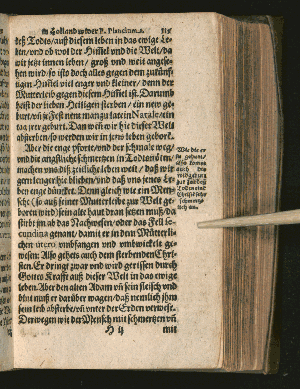 in Holland wider P. Plancium. 115
teß Todts / auß diesem leben in das ewige Le-
ben / vnd ob wol der Himel vnd die Welt / da
wir jetzt innen leben / groß vnd weit angese-
hen wird / so ists doch alles gegen dem zukünff-
tigen Himel viel enger vnd kleiner / denn der
Mutterleib gegen diesem Himel ist. Darumb
heist der lieben Heiligen sterben / ein new ge-
burt / vñ je Fest nent man zu latein Natale / ein
tag jrer geburt. Dan wen wir hie dieser Welt
absterben / so werden wir in jens leben geborē.
Aber die enge pforte / vnd der schmale weg /
vnd die angstliche schmertzen in Todtsnöten /
machen vns diß zeitliche leben weit / daß wir
gern lenger hie blieben / vnd daß vns jenes Le-
ben enge düncket. Denn gleich wie ein Men-
sche (so auß seiner Mutterleibe zur Welt ge-
boren wird) sein alte haut dran setzen muß / da
stirbt jm ab das Nachwesen / oder das Fell se-
cundina genant / damit er in dem Mütterli-
chen utero vmbfangen vnd vmbwickelt ge-
wesen: Also gehets auch dem sterbenden Chri-
sten. Er dringt zwar vnd wird gerissen durch
Gottes Krafft auß dieser Welt in das ewige
leben. Aber den alten Adam vñ sein fleisch vnd
blut muß er darüber wagen / daß nemlich jhm
sein leib absterbe / vñ vnter der Erden verwese.
Derwegen wie der Mensch mit schmertzen vñ
H ij mit
Wie die er
also komen
auch die